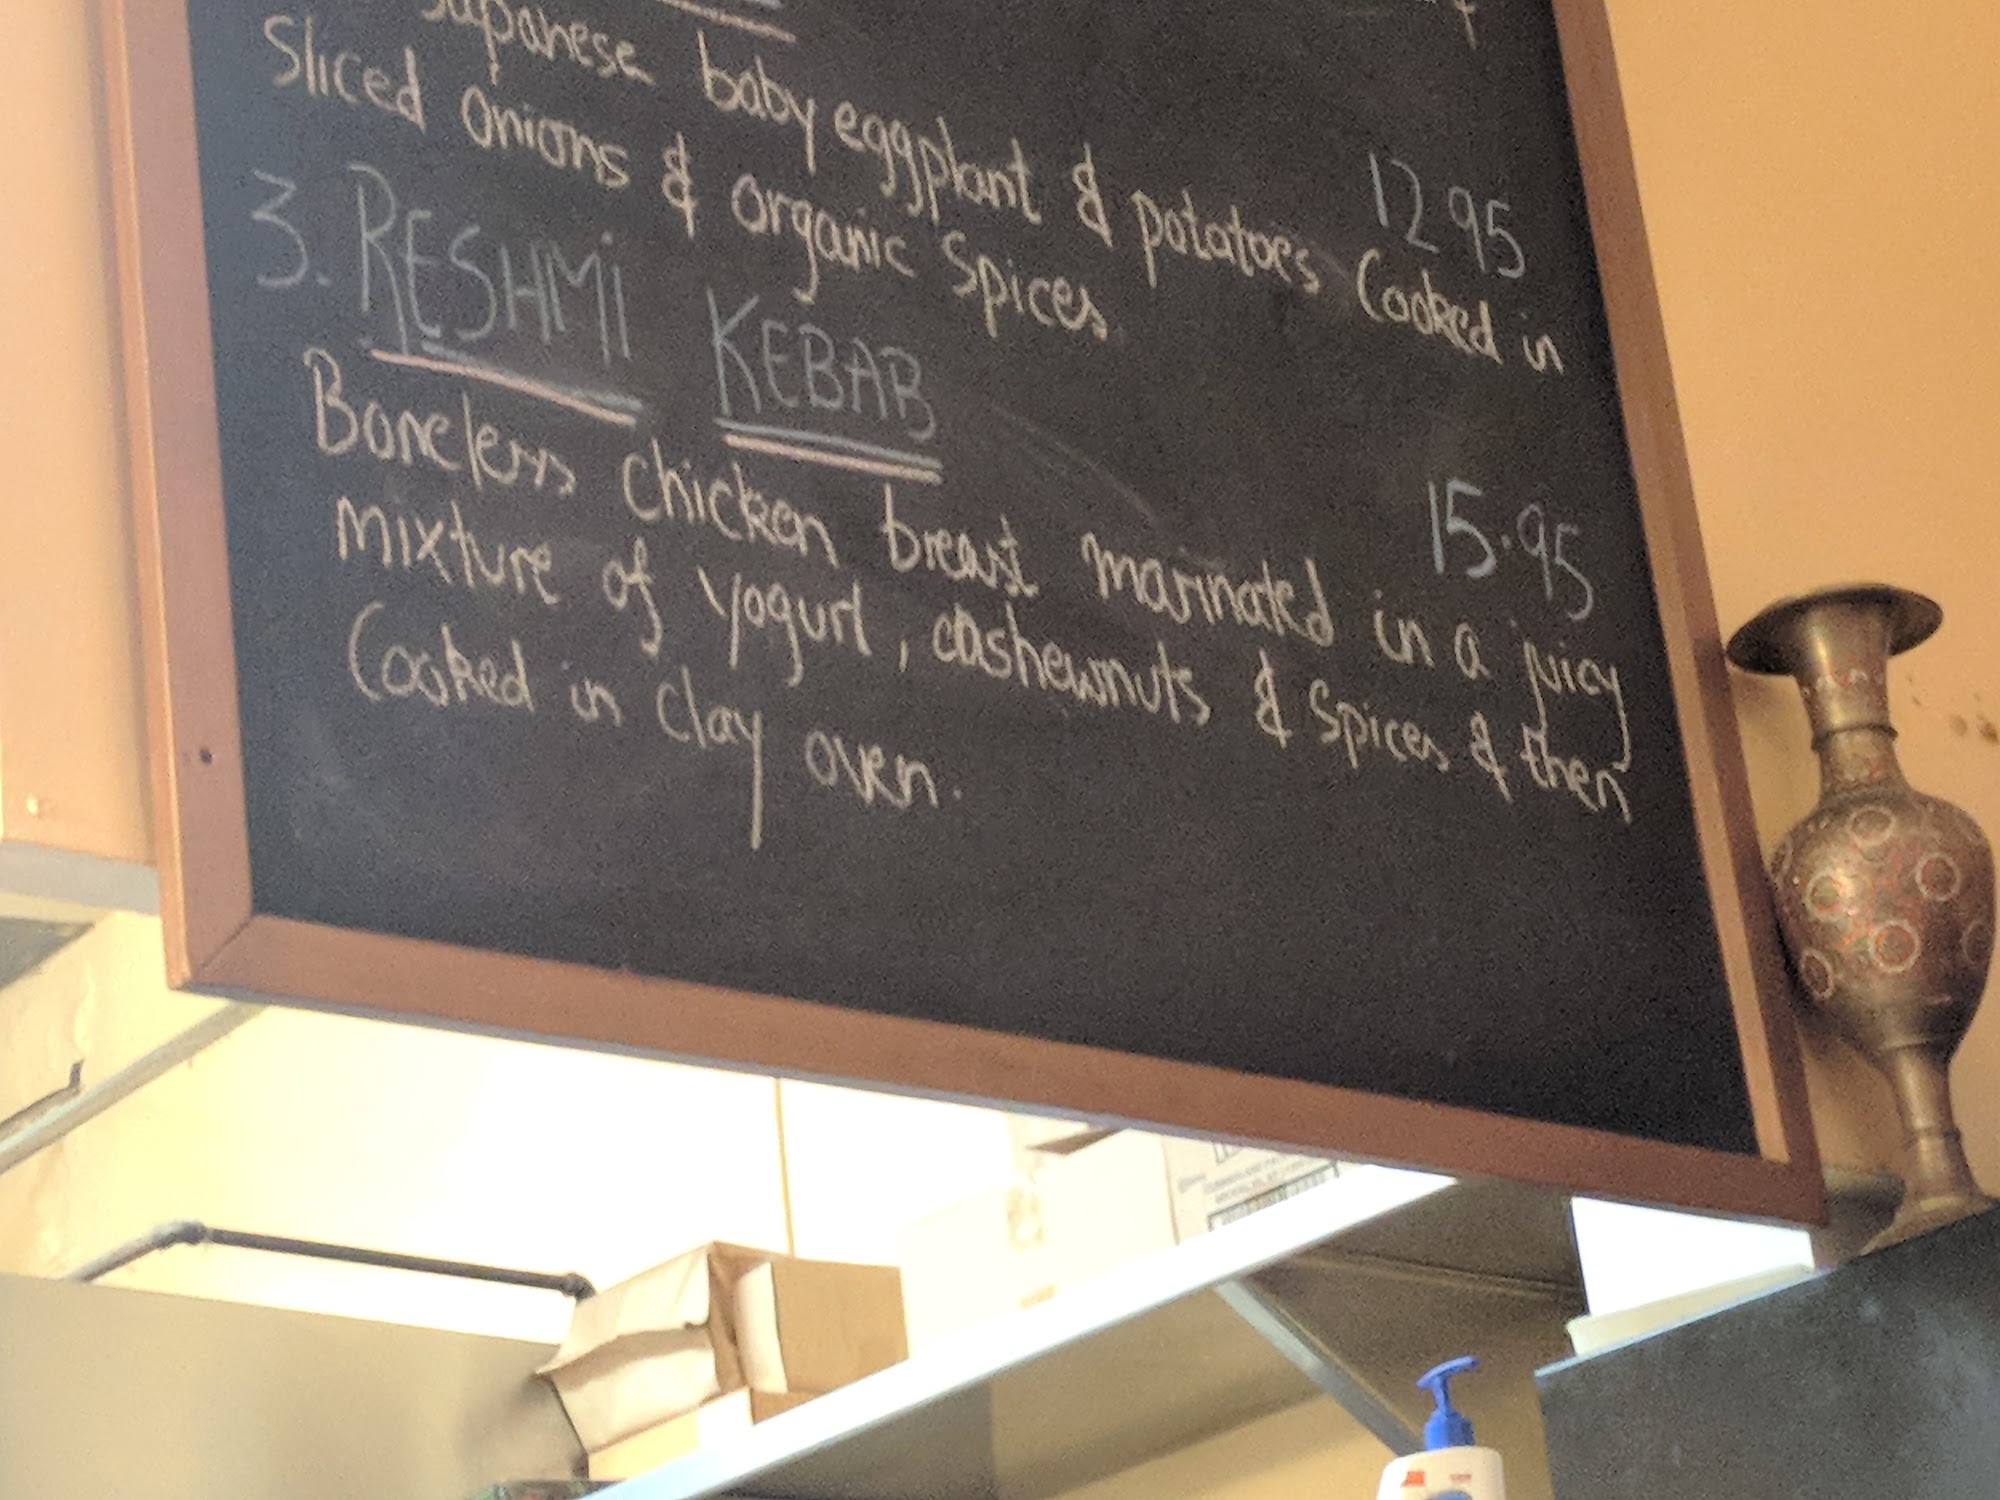 12.95
Japanese baby eggplant & potatoes Cooked in
Sliced onions & organic spices
3. RESHMi KEBAB 15.95
Boneless chicken breast marinated in a juicy
mixture of yogurt, cashewnuts & spices & then
Cooked in clay oven.